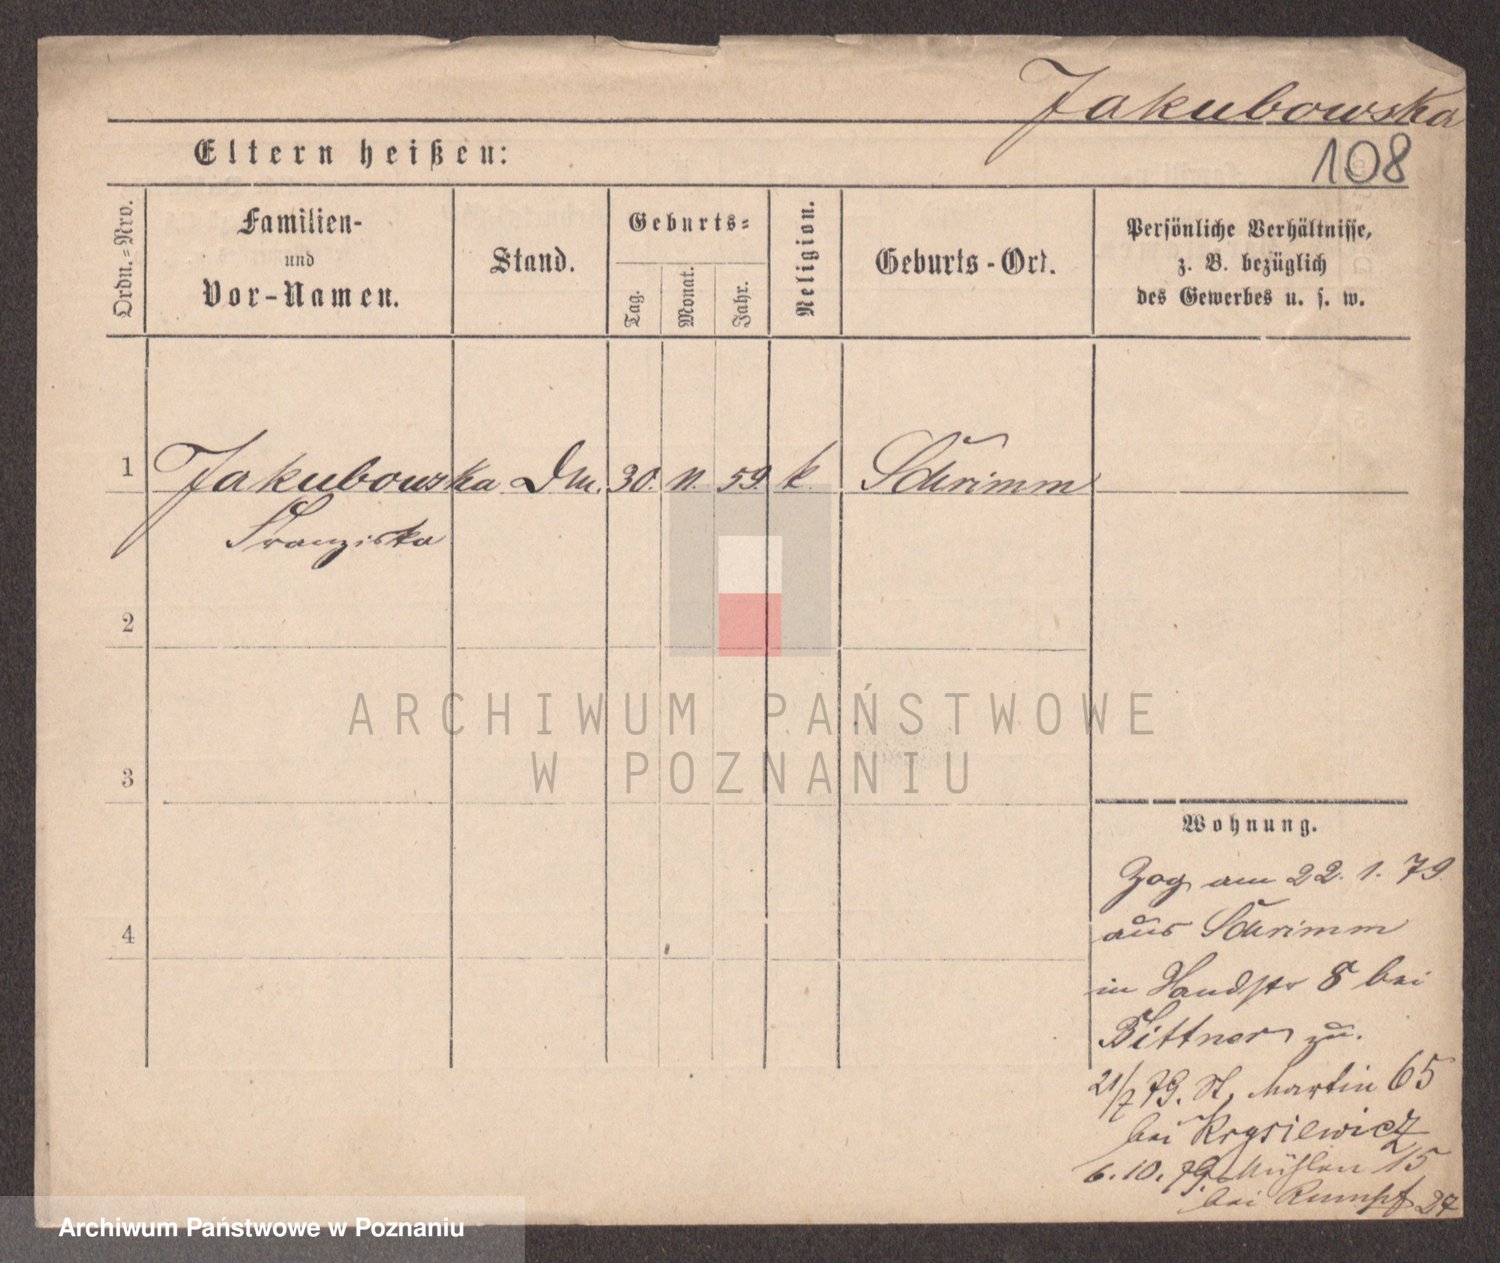 Jakubowska
108
Eltern heißen:
Ordn.=Nro.
Familien-
und
Vor-Namen.
Stand.
Geburts=
Tag.
Monat.
Jahr.
Religion.
Geburts-Ort.
Persönliche Verhältnisse,
z. B. bezüglich
des Gewerbes u. s. w.
1 Jakubowska Dm. 30. 11. 59. k. Schrimm
Franziska
2
3
4
ARCHIWUM PAŃSTWOWE
W POZNANIU
Wohnung.
Zog am 22. 1. 79
aus Schrimm
in 8 bei
Bittner zu.
21/7 79. St. Martin 65
bei Krysiewicz
6. 10. 79. Mühlen 15
bei Rumpf 27
Archiwum Państwowe w Poznaniu